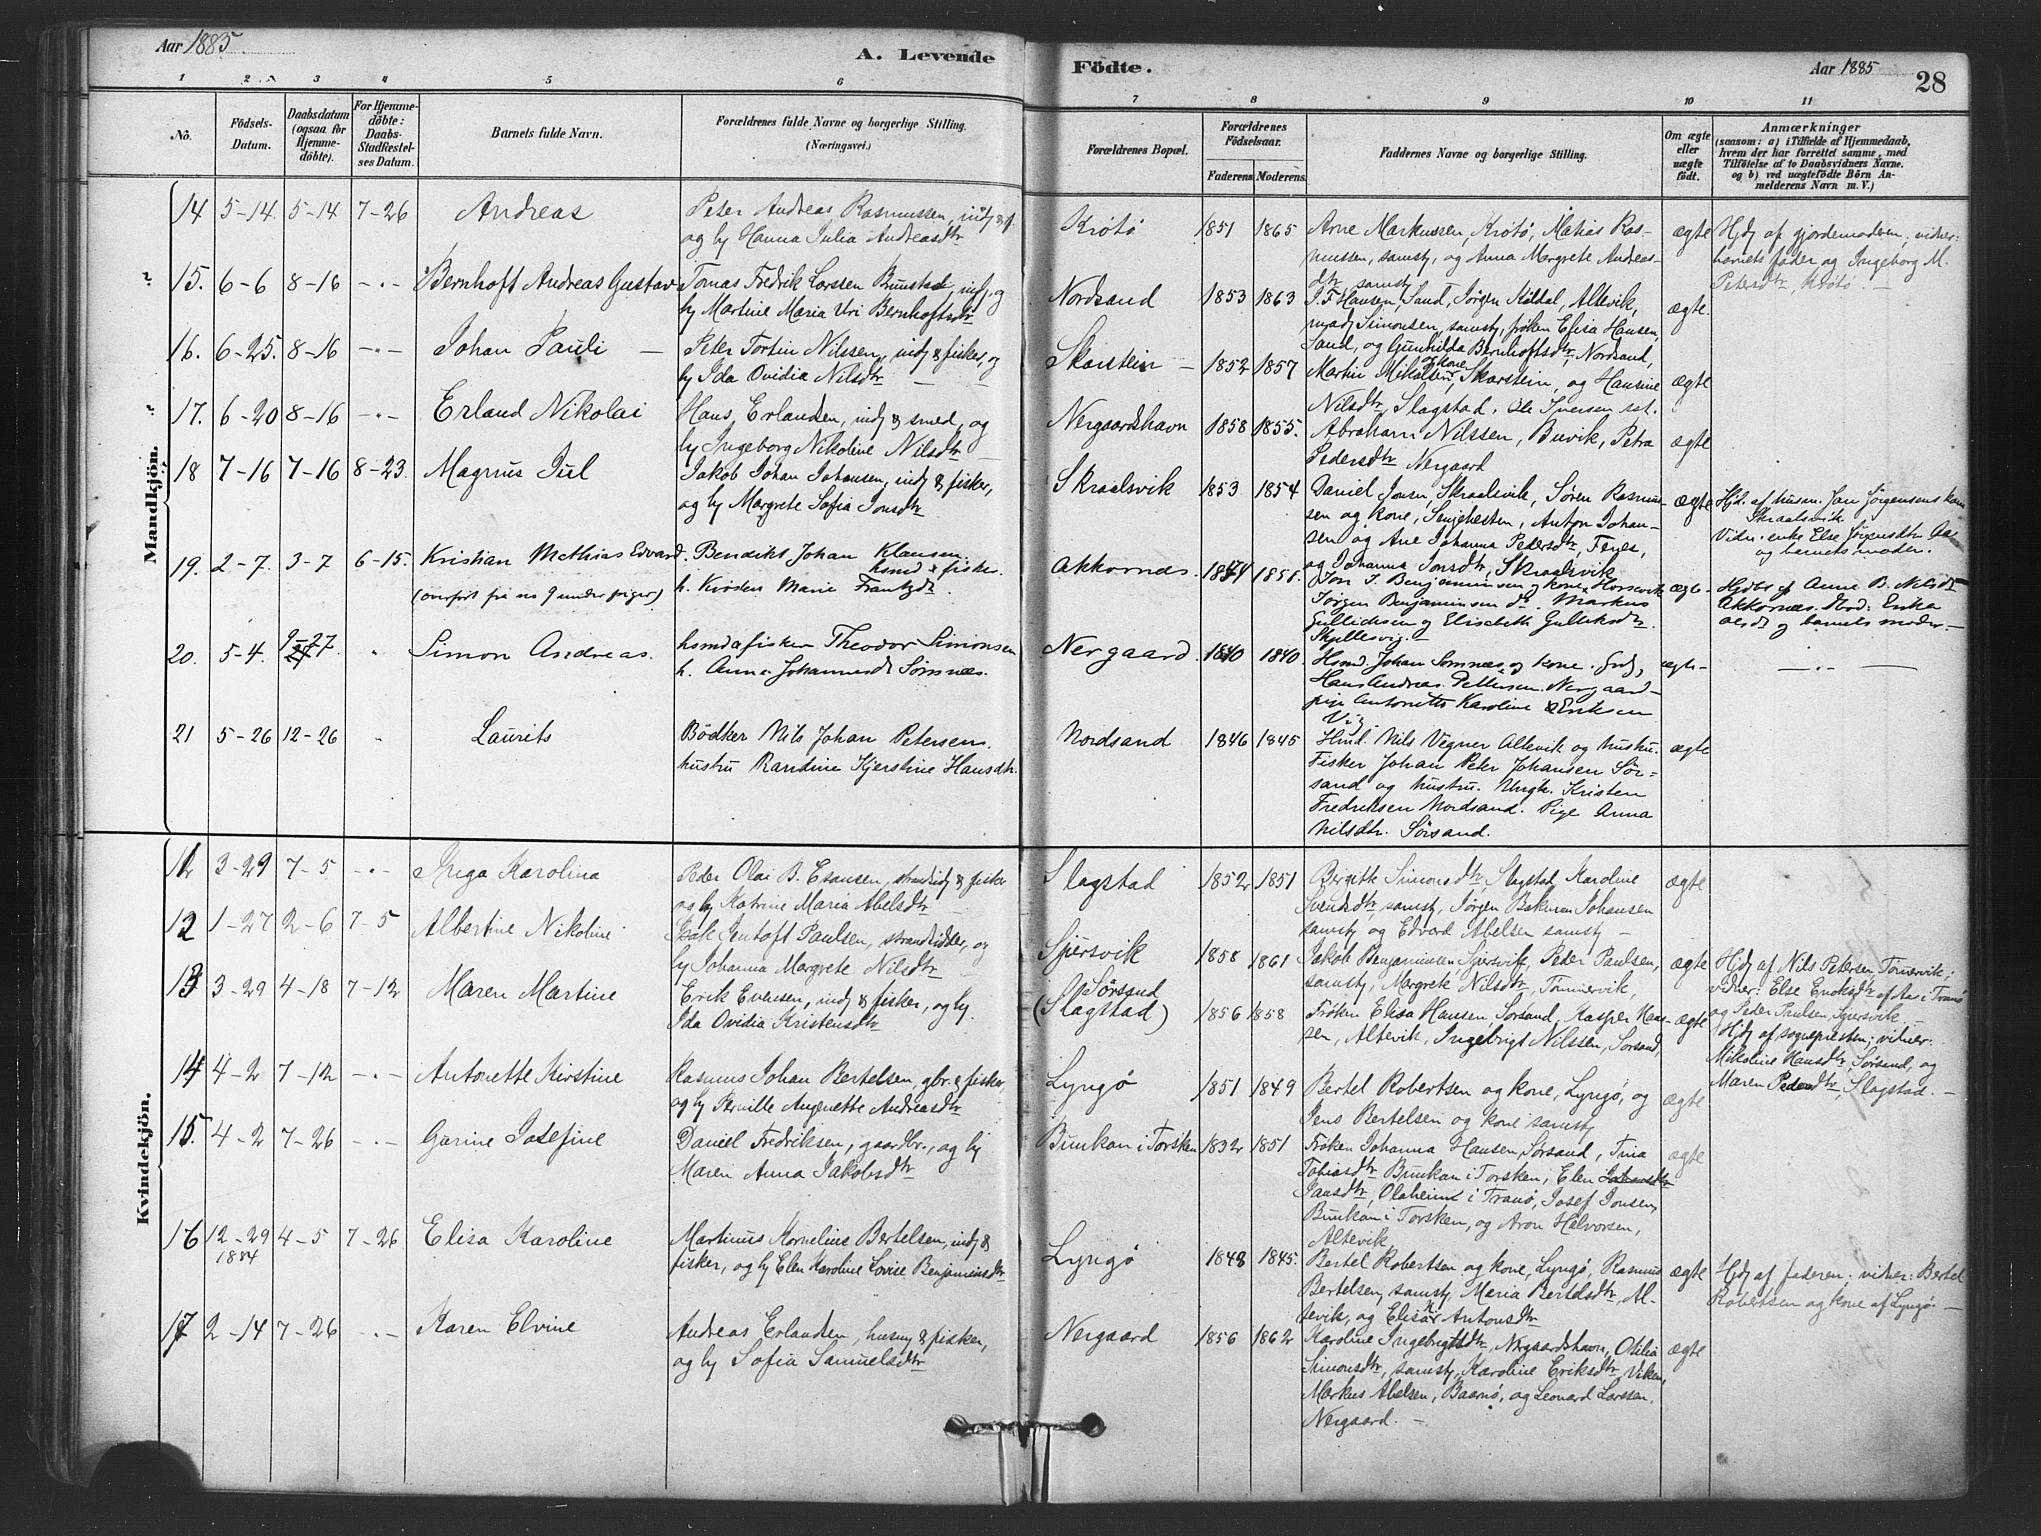 Aar 1885.
A. Levende
Födte.
Aar 1885
28
1 2 3 4 5 6 7 8 9 10 11
No.
Födsels-Datum.
Daabsdatum (ogsaa for Hjemme-döbte).
For Hjemme-döbte: Daabs-Stadfæstel-ses Datum.
Barnets fulde Navn.
Forældrenes fulde Navne og borgerlige Stilling.
(Næringsvei.)
Forældrenes Bopæl.
Forældrenes Födselsaar.
Faderens Moderens
Faddernes Navne og borgerlige Stilling.
Om ægte eller uægte födt.
Anmærkninger
(saasom: a) i Tilfælde af Hjemmedaab, hvem der har forrettet samme, med Tilföielse af to Daabsvidners Navne. og b) ved uægtefödte Börn An-melderens Navn m. V.)
Mandkjön.
14 5-14 5-14 7-26 Andreas
Peter Andreas Rasmussen, indj & f.
og hj Hanna Julia Andreasdtr
Krötö 1851 1865
Arne Markussen, Krötö, Matias Ras-
mussen, samsty, og Anna Margrete Andreas-
dtr samsty
ægte
Hjdj af gjordemoderen; vidner:
barnets fader og Ingeborg M.
Petersdtr, Krötö. —
15. 6-6 8-16 -"- Bernhoft Andreas Gustav
Tomas Fredrik Larssen Bunstad, indj. og
hj Martine Maria Uri Bernhoftsdtr
Nordsand 1853 1863
J. F. Hansen, Sand, Jörgen Köldal, Altevik,
madj Simonsen, samsty, fröken Elisa Hansen,
Sand, og Gunhilda Bernhoftsdtr, Nordsand,
ægte.
16. 6-25. 8-16 -"- Johan Pauli —
Peter Tortin Nilssen, indj & fisker, og
hj Ida Ovidia Nilsdtr —
Skarstein - 1852 1857
Martin Mikalsen & kone, Skarstein, og Hansine
Nilsdtr, Slagstad. Ole Iversen sst.
ægte
17. 6-20 8-16 -"- Erland Nikolai
Hans Erlandsen, indj & smed, og
hj Ingeborg Nikoline Nilsdtr
Nergaardshavn 1858 1855.
Abraham Nilssen, Buvik, Petra
Pedersdtr Nergaard
ægte
18 7-16 7-16 8-23. Magnus Jul
Jakob Johan Johansen, indj & fisker,
og hj Margrete Sofia Jonsdtr
Skraalsvik 1853 1854
Daniel Jonsn, Skraalsvik, Sören Rasmus-
sen og kone, Senjehesten, Anton Johan-
sen og Ane Johanna Pedersdtr, Fenes,
og Johanna Jonsdtr, Skraalsvik
ægte
Hjd. af husm. Jan Jörgensens kone
Skraalsvik.
Vidn: enke Else Jörgensdtr Aa
og barnets moder.
19. 2-7. 3-7 6-15. Kristian Mathias Edvard.
(overfört fra no 9 under piger)
Bendikt Johan Klausen
hsmd & fisker
h. Kirsten Marie Frantzdtr
Akkarnæs. 1844 1851.
Jon J. Benjaminsen og kone, Horsevik
Jörgen Benjaminsen do. Markus
Gulliksen og Elisabeth Gulliksdtr.
Skjellesvig. —
ægte-
Hjdbt af Anne B. Nilsdtr
Akkarnæs. Mod: Erika
og barnets moder —
20. 5-4. 9-27. " Simon Andreas.
hsmdafisker Theodor Simonsen
h. Anna Johannesdt Sörnnæs.
Nergaard. 1840 1840.
Hsmd. Johan Somnæs, og kone.
Hans Andreas Pettersen. Nergaard—
pige Antonette Karoline Eriksen
Vig.
ægte-
—"—
21 5-26 12-26 " Laurits
Bödker Nils Johan Petersen.
hustru Randine Kjerstine Hansdtr.
Nordsand 1846 1845
Hmd. Nils Vegner Altevik og hustru.
Fisker Johan Peter Johansen Sör-
sand og hustru. Ungk. Kristen
Fredriksen Nordsand. Pige Anna
Nilsdtr. Sörsand.
ægte
Kvindekjön.
12 3-29 7-5 -"- Inga Karolina
Peder Olai B. Esausen, strandsidj & fisker
og hj Katrine Maria Abelsdtr —
Slagstad 1852 1851
Bergitte Simonsdtr, Slagstad, Karoline
Svendsdtr, samsty, Jörgen Bakman Johansen
samsty og Edvard Abelsen samsty —
ægte
12 1-27 2-6 7-5 Albertine Nikoline
Isak Jentoft Paulsen, strandsidder, og
hj Johanna Margrete Nilsdtr
Sjersvik 1858 1861
Jakob Benjaminsen Sjersvik, Peder Paulsen,
samsty, Margrete Nilsdtr, Tönnervik,
ægte
Hjdj af Nils Petersen, Tönnervik;
vidner: Else Enoksdtr af Aa i Tranö
og Peder Paulsen, Sjersvik. —
13 3-29 4-18 7-12 Maren Martine
Erik Evensen, indj & fisker, og hj.
Ida Ovidia Kristensdtr
Sörsand
(Slagstad) 1856 1858
Fröken Elisa Hansen, Sörsand, Kasper Hans-
sen, Altevik, Ingebrigt Nilssen, Sörsand,
ægte
Hjdj af sognepresten; vidner:
Nikoline Hansdtr Sörsand, og
Maren Pedersdtr, Slagstad. —
14 4-2 7-12 -"- Antonette Kirstine
Rasmus Johan Bertelsen, gbr. & fisker,
og hj Pernille Angenette Andreasdtr
Lyngö 1851 1849
Bertel Robertsen og kone, Lyngö, og
Jens Bertelsen og kone samsty
ægte
15. 4-2 7-26 -"- Gurine Josefine
Daniel Fredriksen, gaardbr., og hj
Maren Anna Jakobsdtr
Bunkan i Torsken 1832 1851
Fröken Johanna Hansen, Sörsand, Tina
Tobiasdtr Bunkan i Torsken, Elen
Jansdtr, Olaheim i Tranö, Josef Jonsen,
Bunkan i Torsken, og Aron Halvorsen,
Altevik
ægte
16 12-29 1884 4-5 7-26 Elisa Karoline
Martinus Kornelius Bertelsen, indj &
fisker, og hj Elen Karoline Lovise Benjaminsdtr
Lyngö 1848 1845.
Bertel Robertsen og kone, Lyngö, Rasmus
Bertelsen, samsty, Maria Bertelsdtr, Al-
tevik, og Elisa Antonsdtr
ægte
Hjdj af faderen; vidner: Bertel
Robertsen og kone af Lyngö —
17 2-14 7-26 -"- Karen Elvine
Andreas Erlandsen, husmj & fisker,
og hj Sofia Samuelsdtr
Nergaard 1856 1862
Karoline Ingebrigtsdtr, Nergaardshavn, Otilia
Simonsdtr, samsty, Karoline Eriksdtr, Viken,
Markus Abelsen, Baanö, og Leonard Larssen,
Nergaard. —
ægte